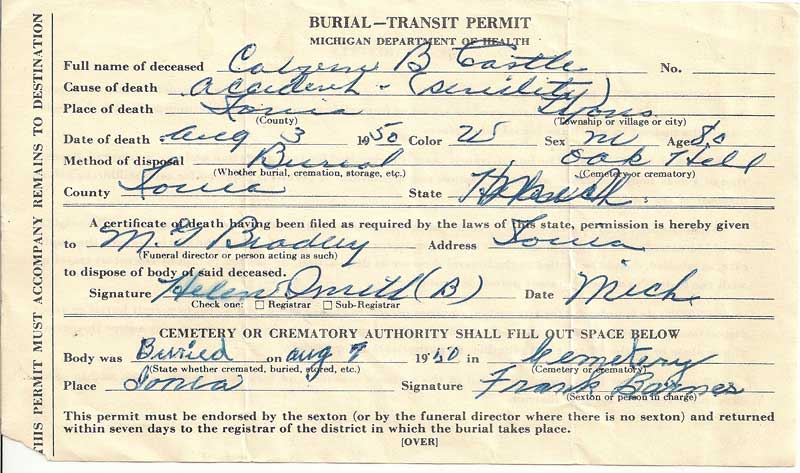 BURIAL—TRANSIT PERMIT
MICHIGAN DEPARTMENT OF HEALTH
Full name of deceased B Castle No.
Cause of death Accident - (senility)
Place of death Ionia Lyons
(County) (Township or village or city)
Date of death Aug 3 1950 Color W Sex M Age 80
Method of disposal Burial Oak Hill
(Whether burial, cremation, storage, etc.) (Cemetery or crematory)
County Ionia State
A certificate of death having been filed as required by the laws of this state, permission is hereby given
to M. Bradley Address Ionia
(Funeral director or person acting as such)
to dispose of body of said deceased.
Signature Helen Smith (B) Date Mich.
Check one: ☐ Registrar ☐ Sub-Registrar
CEMETERY OR CREMATORY AUTHORITY SHALL FILL OUT SPACE BELOW
Body was Buried on Aug 1950 in Cemetery
(State whether cremated, buried, stored, etc.) (Cemetery or crematory)
Place Ionia Signature Frank Barnes
(Sexton or person in charge)
This permit must be endorsed by the sexton (or by the funeral director where there is no sexton) and returned
within seven days to the registrar of the district in which the burial takes place.
[OVER]
THIS PERMIT MUST ACCOMPANY REMAINS TO DESTINATION